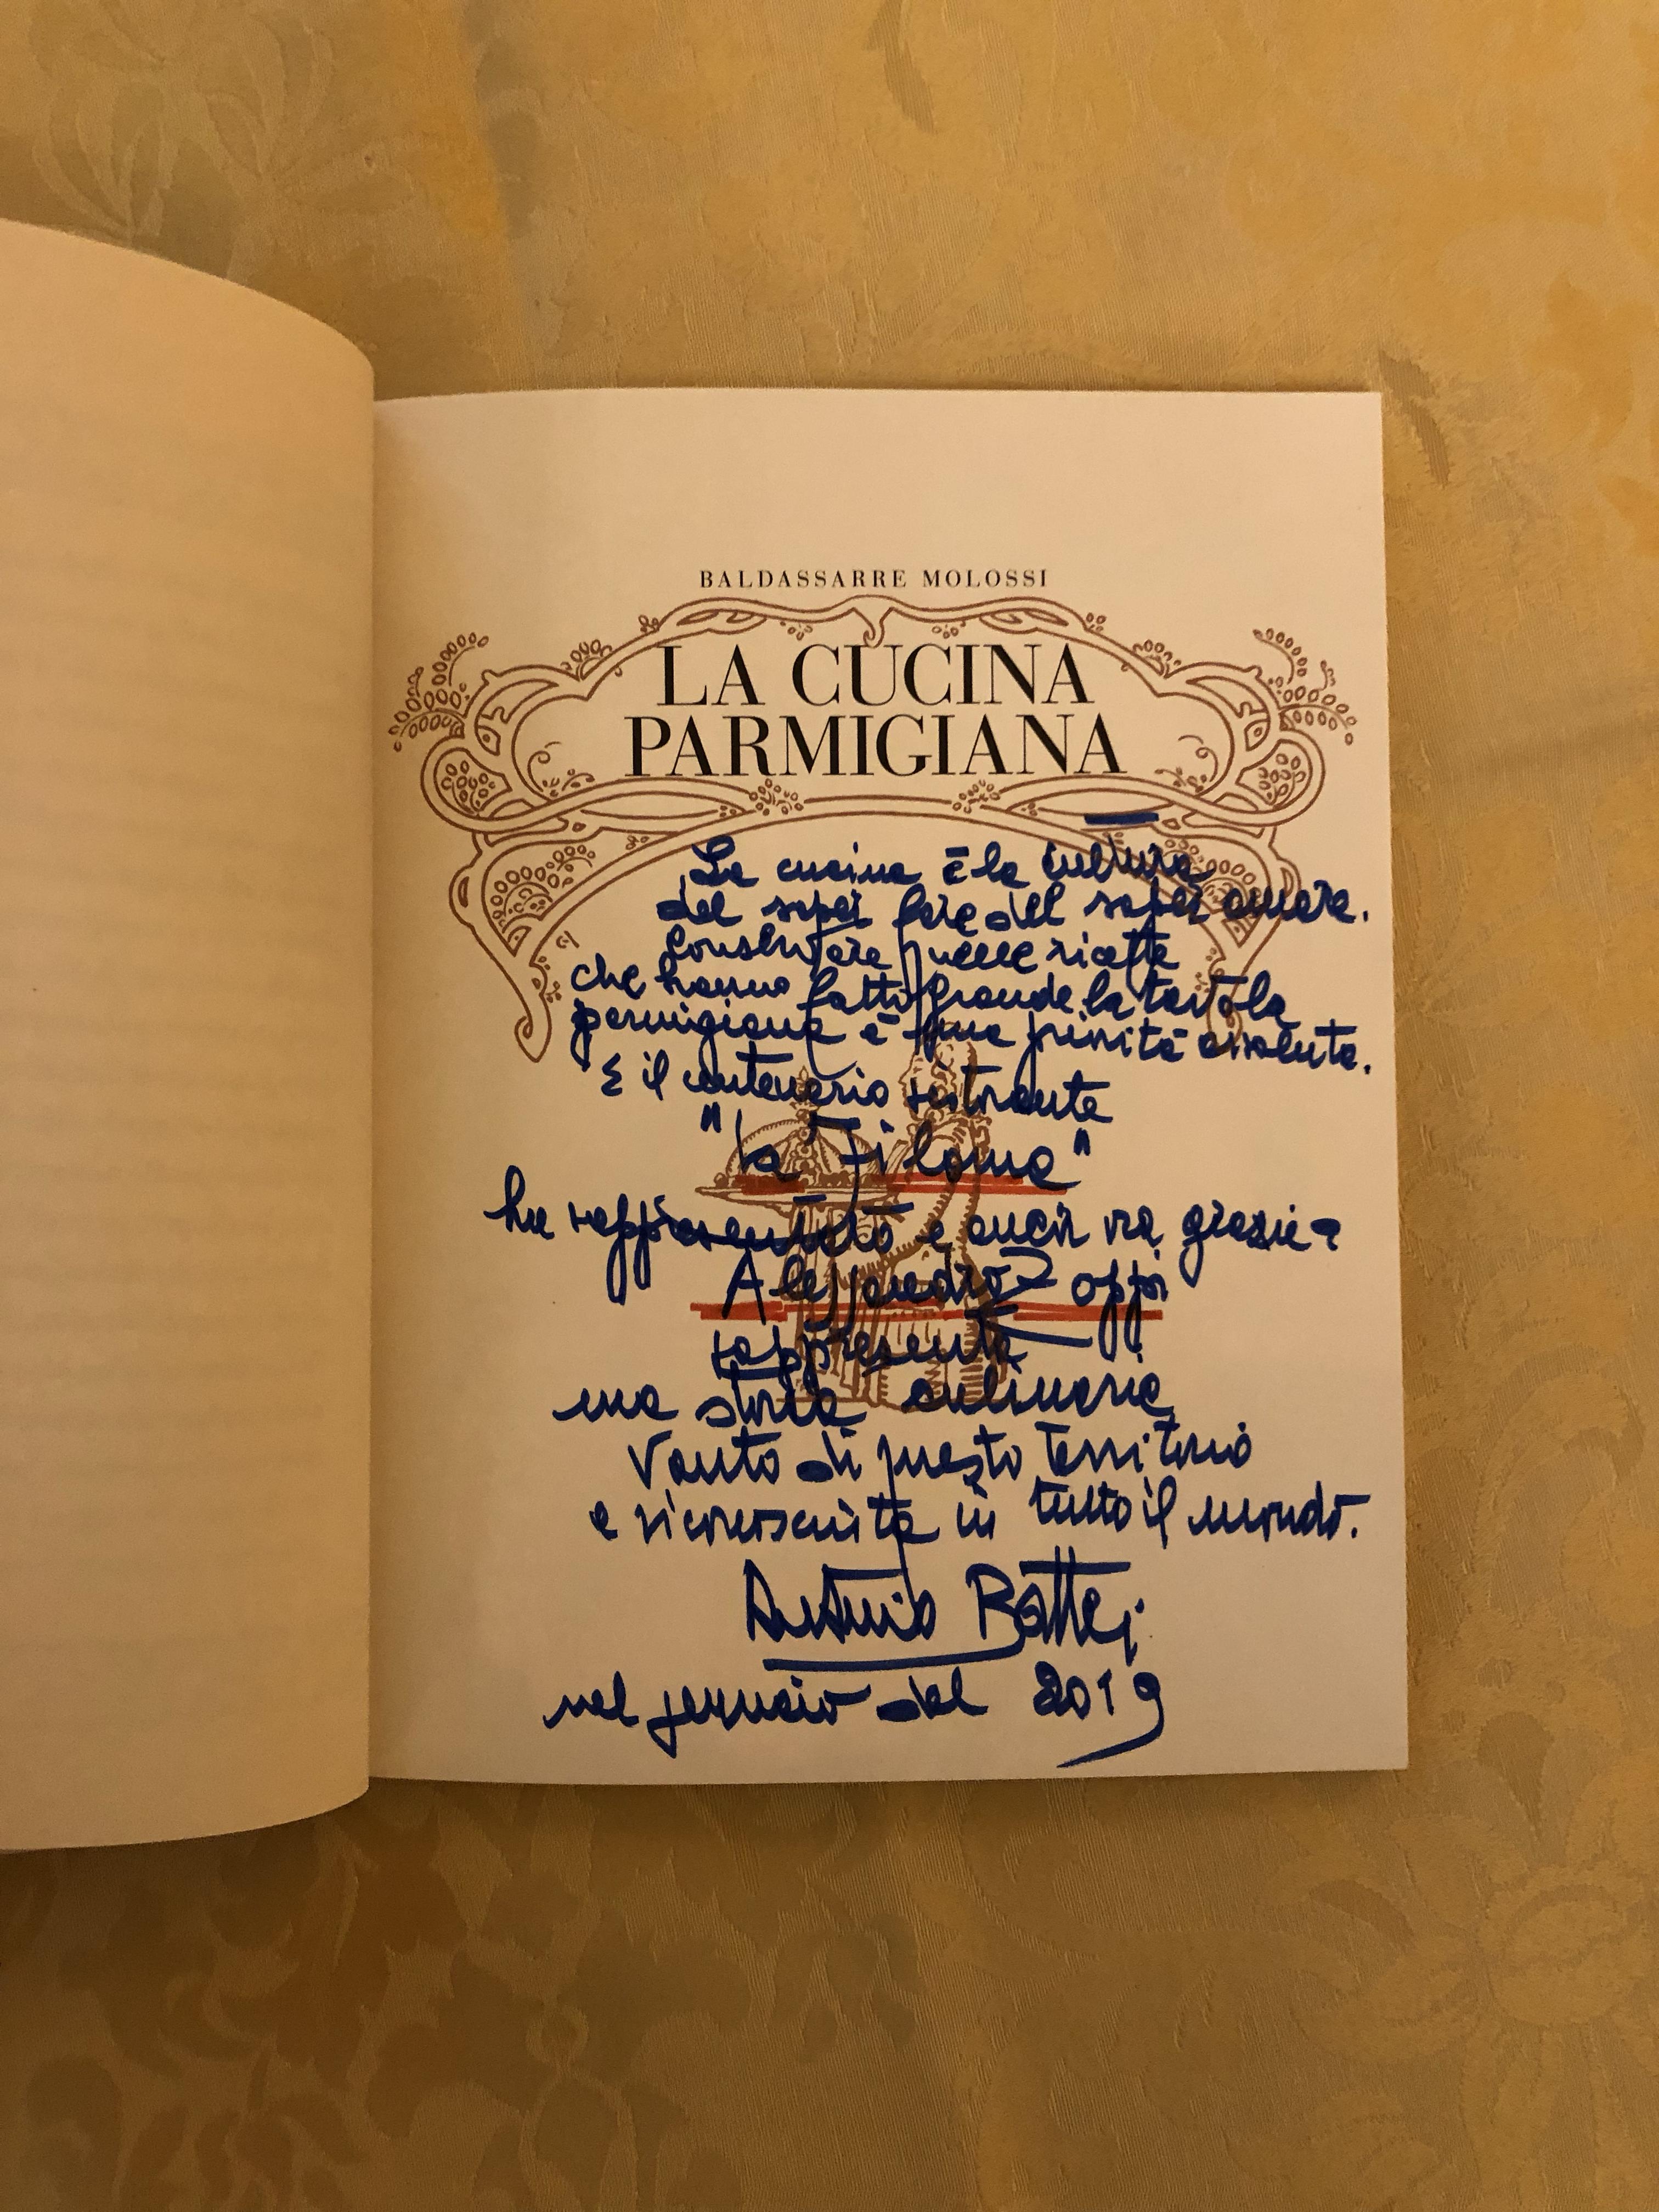 BALDASSARRE MOLOSSI
LA CUCINA
PARMIGIANA
La cucina è la cultura
del saper fare del saper amare.
Conservare quelle ricette
che hanno fatto grande la tavola
parmigiana è una priorità assoluta.
E il centenario ristorante
"la Filoma"
ha rappresentato e ancor ora grazie a
Alessandro Zoppi
rappresenta
una storia culinaria
vanto di questo territorio
e riconosciuta in tutto il mondo.
Antonio Battei
nel gennaio del 2019